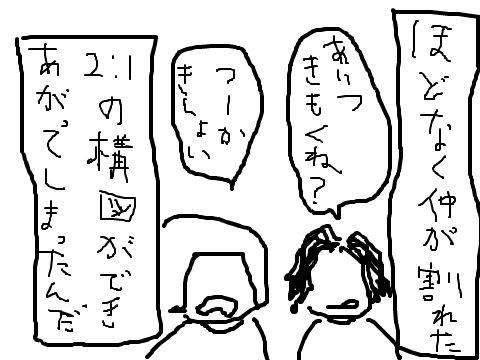 ほどなく仲が割れた
あいつ
きもくね?
つーか
きしょい
2:1の構図ができ
あがってしまったんだ